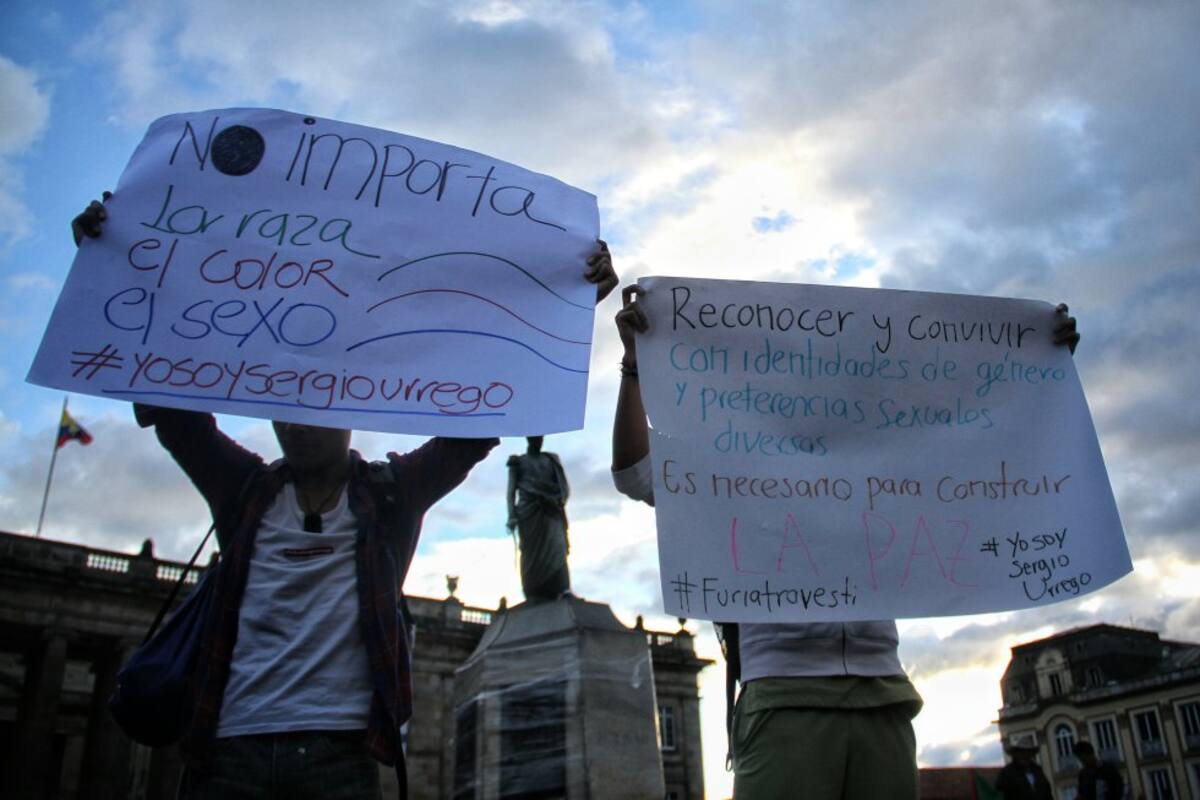 No importa
La raza
el color
el sexo
#yosoysergiourrego
Reconocer y convivir
con identidades de género
y preferencias sexuales
diversas
Es necesario para construir
LA PAZ
#Yo soy
Sergio
Urrego
#Furiatravesti